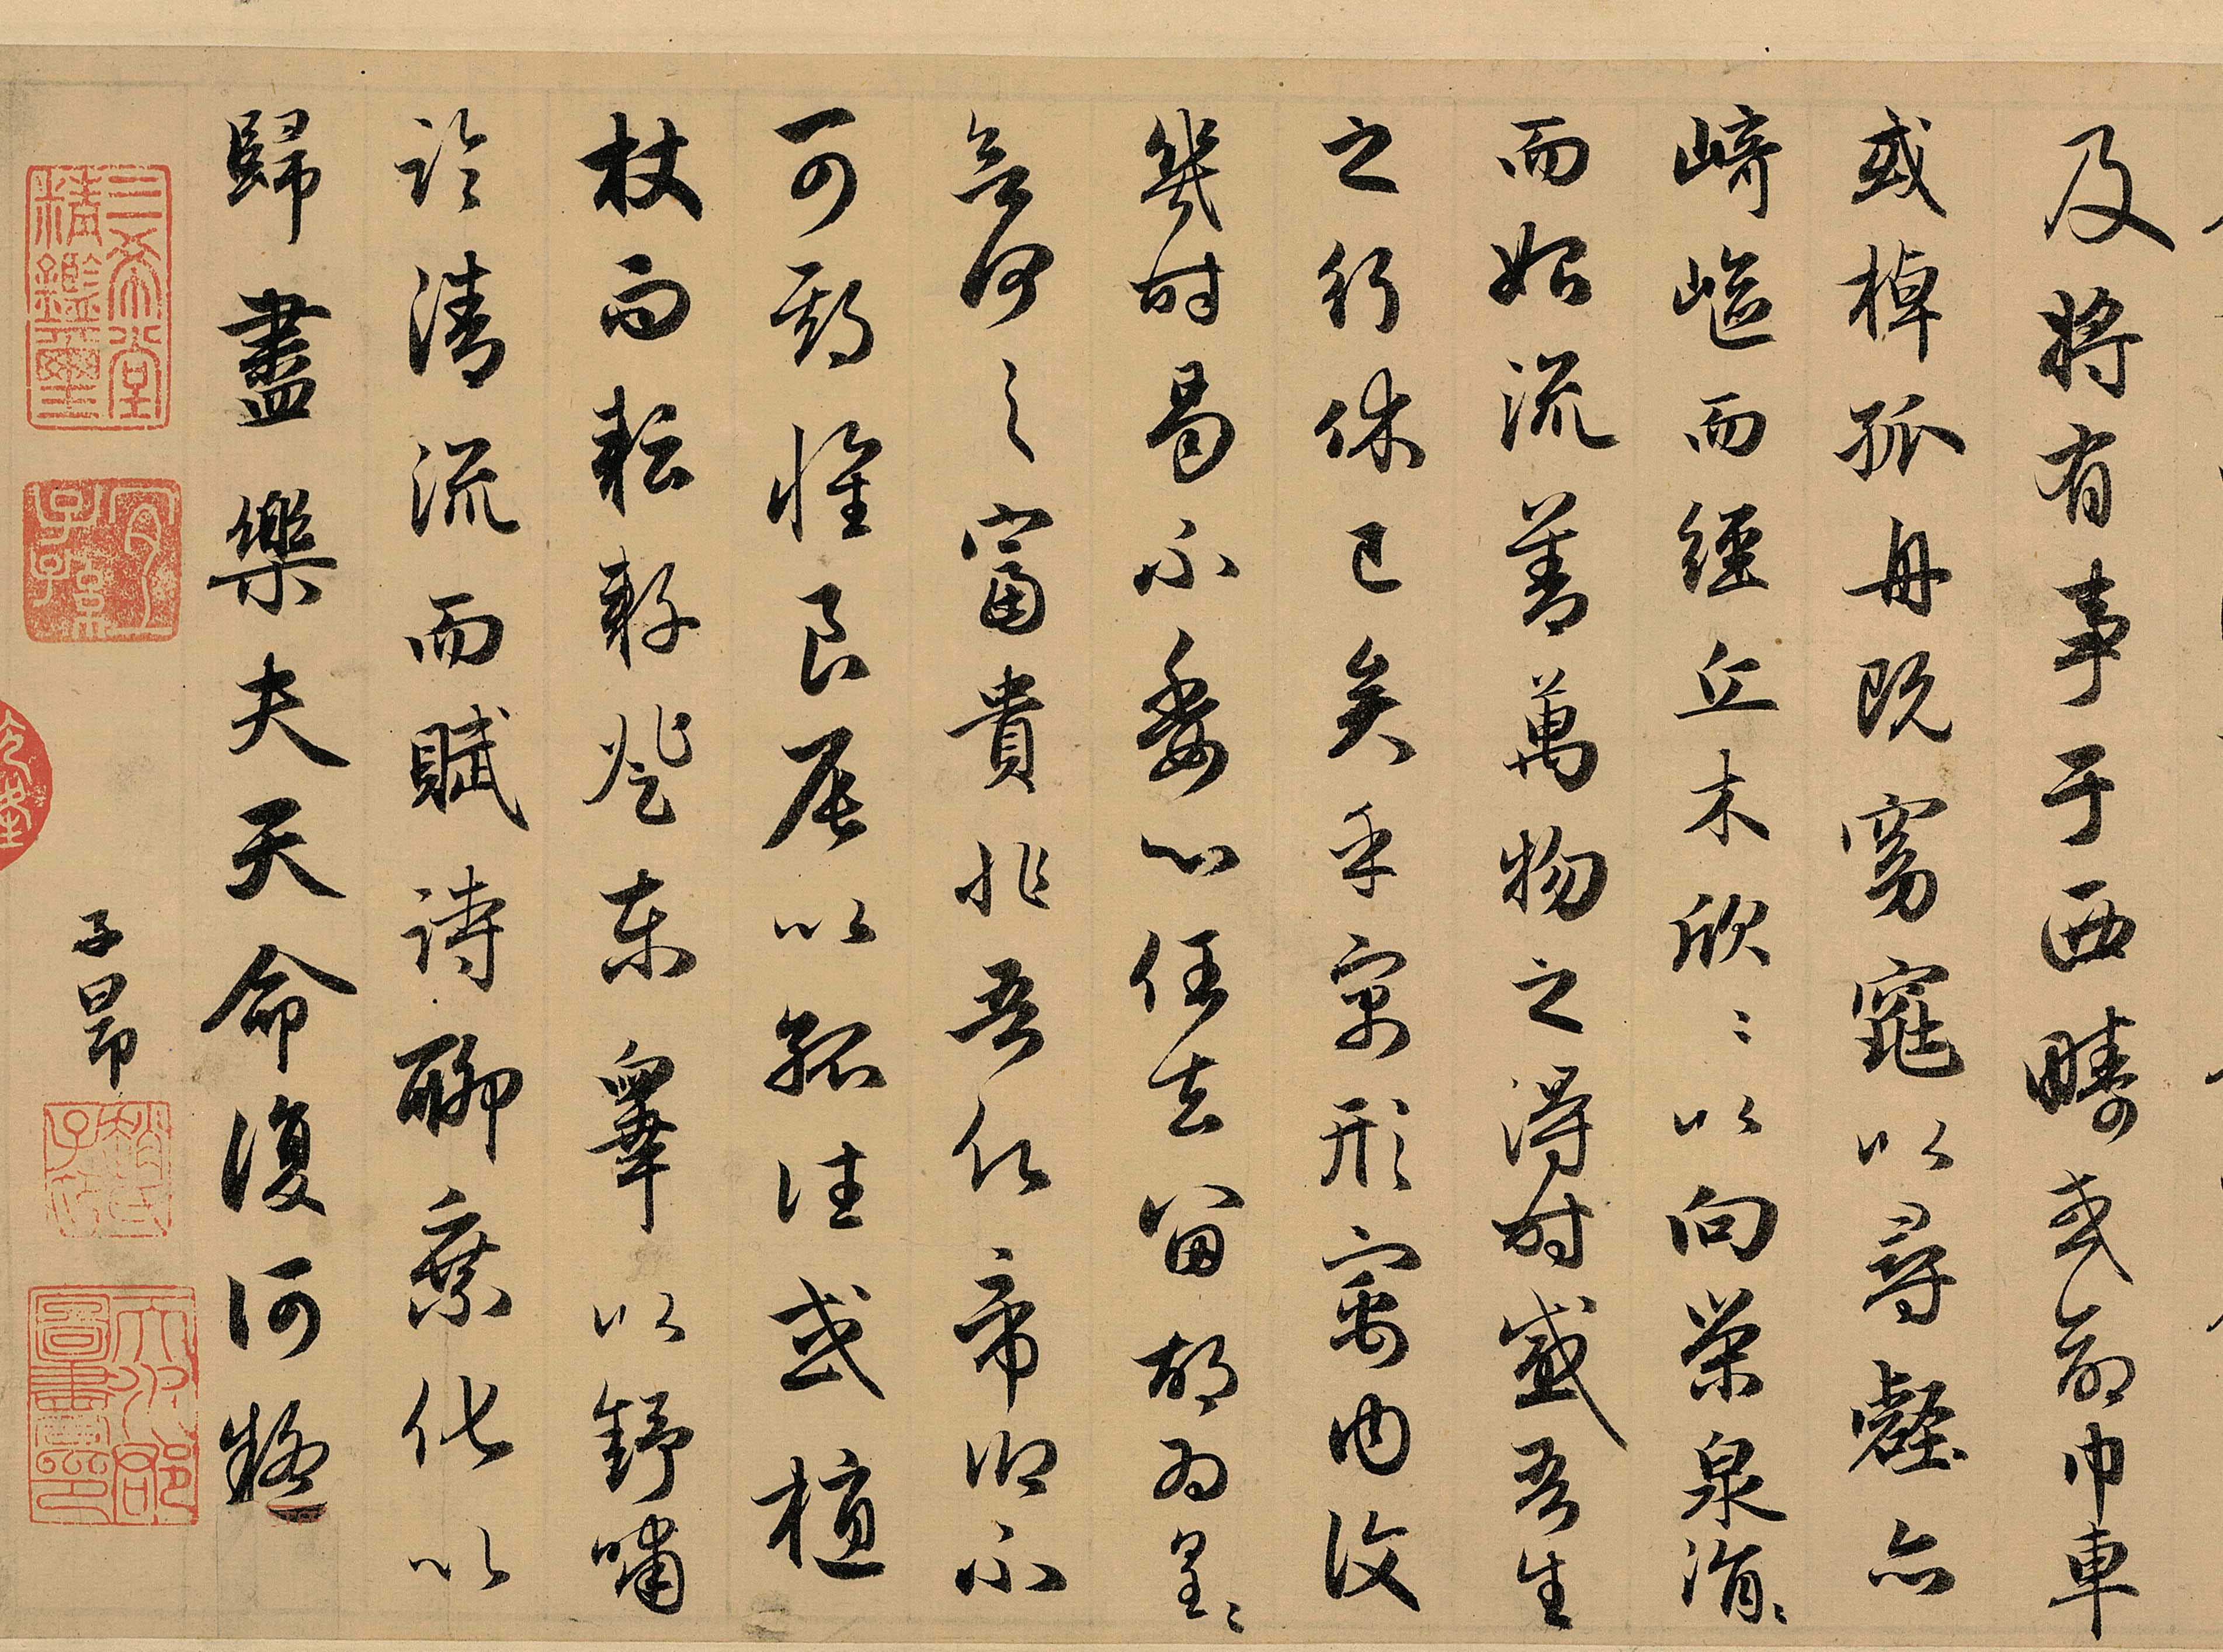 及將有事于西疇或命巾車
或棹孤舟既窈窕以尋壑亦
崎嶇而經丘木欣〻以向榮泉涓〻
而始流善萬物之得時感吾生
之行休已矣乎寓形寓内復
幾時曷不委心任去留胡為遑〻
兮何之富貴非吾願帝鄉不
可期惟良辰以孤往或植
杖而耘耔登東皋以舒嘯
臨清流而賦詩聊乘化以
歸盡樂夫天命復何疑
子昂
三希堂精鑑璽
宜子孫
趙氏子昂
大水都吾書畫印